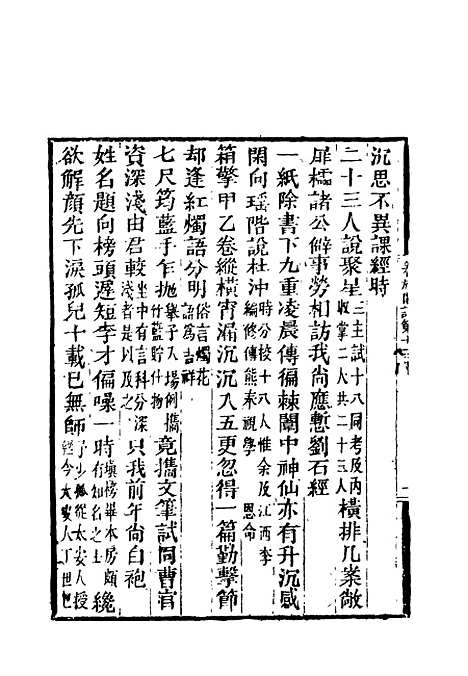 沉思不異課經時
二十三人說聚星三主試十八同考及內收掌二人共二十三人橫排几案敞
屏㡠諸公僻事勞相訪我尚應慙劉石經
一紙除書下九重凌晨傳徧棘闈中神仙亦有升沉感
閑向瑤階說杜沖時分校十八人惟余及江西李編修傳熊奉視學 恩命
箱擎甲乙卷縱橫宵漏沉沉入五更忽得一篇勤擊節
却逢紅燭語分明俗言燭花語為吉祥
七尺筠藍手乍拋舉子入場例攜竹藍貯什物竟攜文筆試同曹官
資深淺由君較坐中有言科分深淺者是以及之只我前年尚白袍
姓名題向榜頭遲短李才偏噪一時填榜畢本房頗有知名之士纔
欲解顏先下淚孤兒十載已無師予少孤從太安人授經今太安人下世已